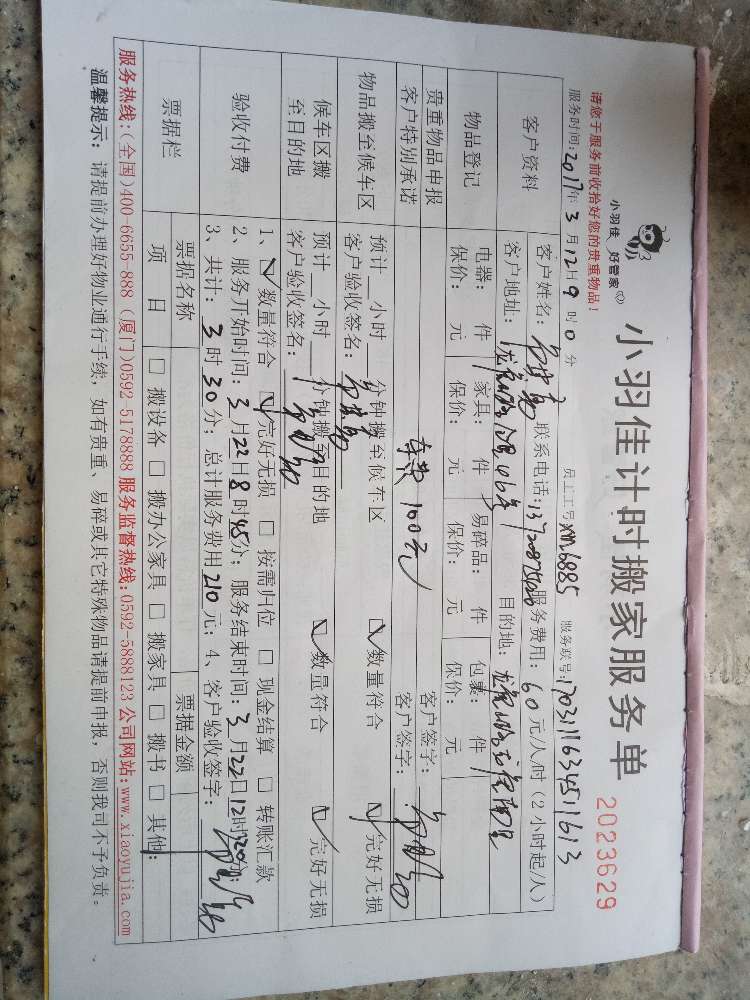 小羽佳计时搬家服务单
2023629
小羽佳 好管家
请您于服务前收拾好您的贵重物品！
服务时间:2017年3月12日9时0分 员工工号XM6885 服务联号:1703111634511613
客户资料 客户姓名: 联系电话: 服务费用: 60元/人/时(2小时起/人)
客户地址: 目的地:
物品登记 电器: 件 家具: 件 易碎品: 件 包裹: 件
保价: 元 保价: 元 保价: 元 保价: 元
贵重物品申报 客户签字:
客户特别承诺 车费100元 客户签字:
物品搬至候车区 预计 小时 分钟搬至候车区 ☑数量符合 ☑完好无损
客户验收签名:
候车区搬至目的地 预计 小时 分钟搬至目的地 ☑数量符合 ☑完好无损
客户验收签名:
验收付费 1、☑数量符合 ☑完好无损 □ 按需归位 □ 现金结算 □ 转账汇款
2、服务开始时间: 3月22日8时45分; 服务结束时间: 3月22日12时20分;
3、共计: 3时30分; 总计服务费用210元; 4、客户验收签字:
票据栏 票据名称 票据金额
项 目 □ 搬设备 □ 搬办公家具 □ 搬家具 □ 搬书 □ 其他:
服务热线:(全国)400-6655-888 (厦门)0592-5178888 服务监督热线:0592-5888123 公司网站:www.xiaoyujia.com
温馨提示: 请提前办理好物业通行手续, 如有贵重、易碎或其它特殊物品请提前申报, 否则我司不予负责。